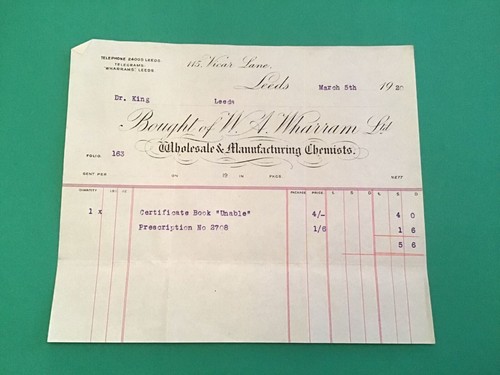 TELEPHONE 24066 LEEDS.
TELEGRAMS:
"WHARRAMS," LEEDS.
115, Vicar Lane,
Leeds March 5th 1920
Dr. King Leeds
Bought of W. A. Wharram Ltd
Wholesale & Manufacturing Chemists.
FOLIO. 163
SENT PER ON 19 IN PKGS. NETT
QUANTITY PACKAGE PRICE £ S D £ S D
1 x Certificate Book "Unable" 4/- 4 0
Prescription No 2708 1/6 1 6
5 6